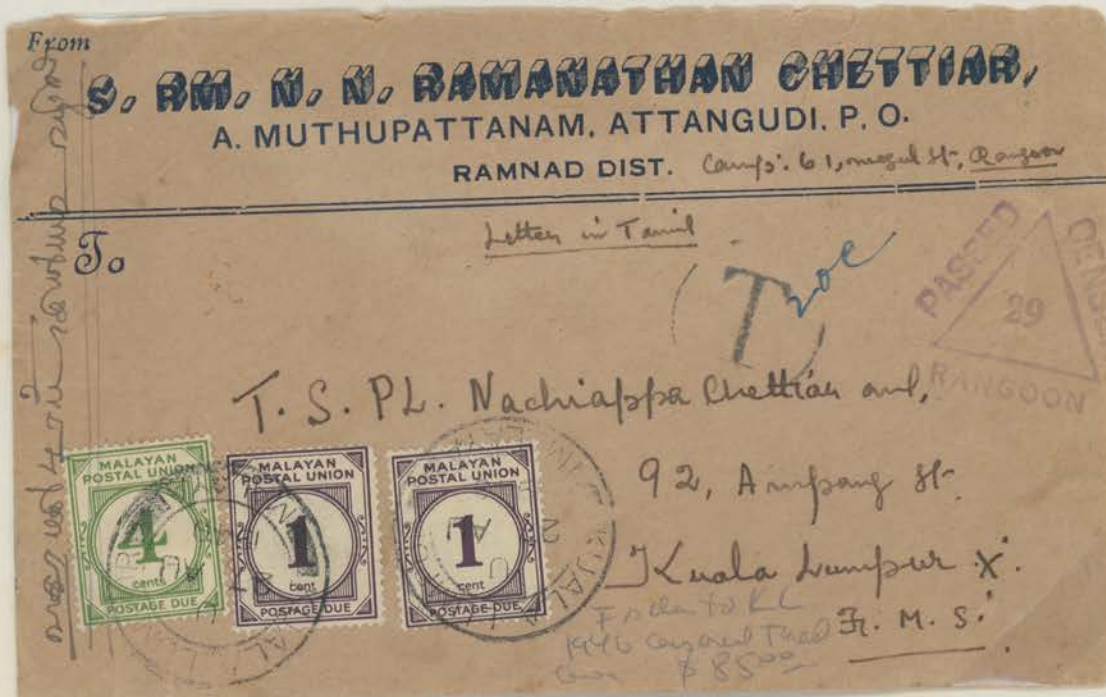 From
S. RM. N. N. RAMANATHAN CHETTIAR,
A. MUTHUPATTANAM, ATTANGUDI. P. O.
RAMNAD DIST.
Camp: 61, mogul St, Rangoon
To
Letter in Tamil
T 20c
PASSED
CENSOR
29
RANGOON
T. S. PL. Nachiappa Chettiar and,
92, Ampang St.
Kuala Lumpur X.
F. M. S.
MALAYAN
POSTAL UNION
4
cents
POSTAGE DUE
MALAYAN
POSTAL UNION
1
cent
POSTAGE DUE
MALAYAN
POSTAL UNION
1
cent
POSTAGE DUE
KUALA LUMPUR
to KL
1940 Censored
Cover $8500